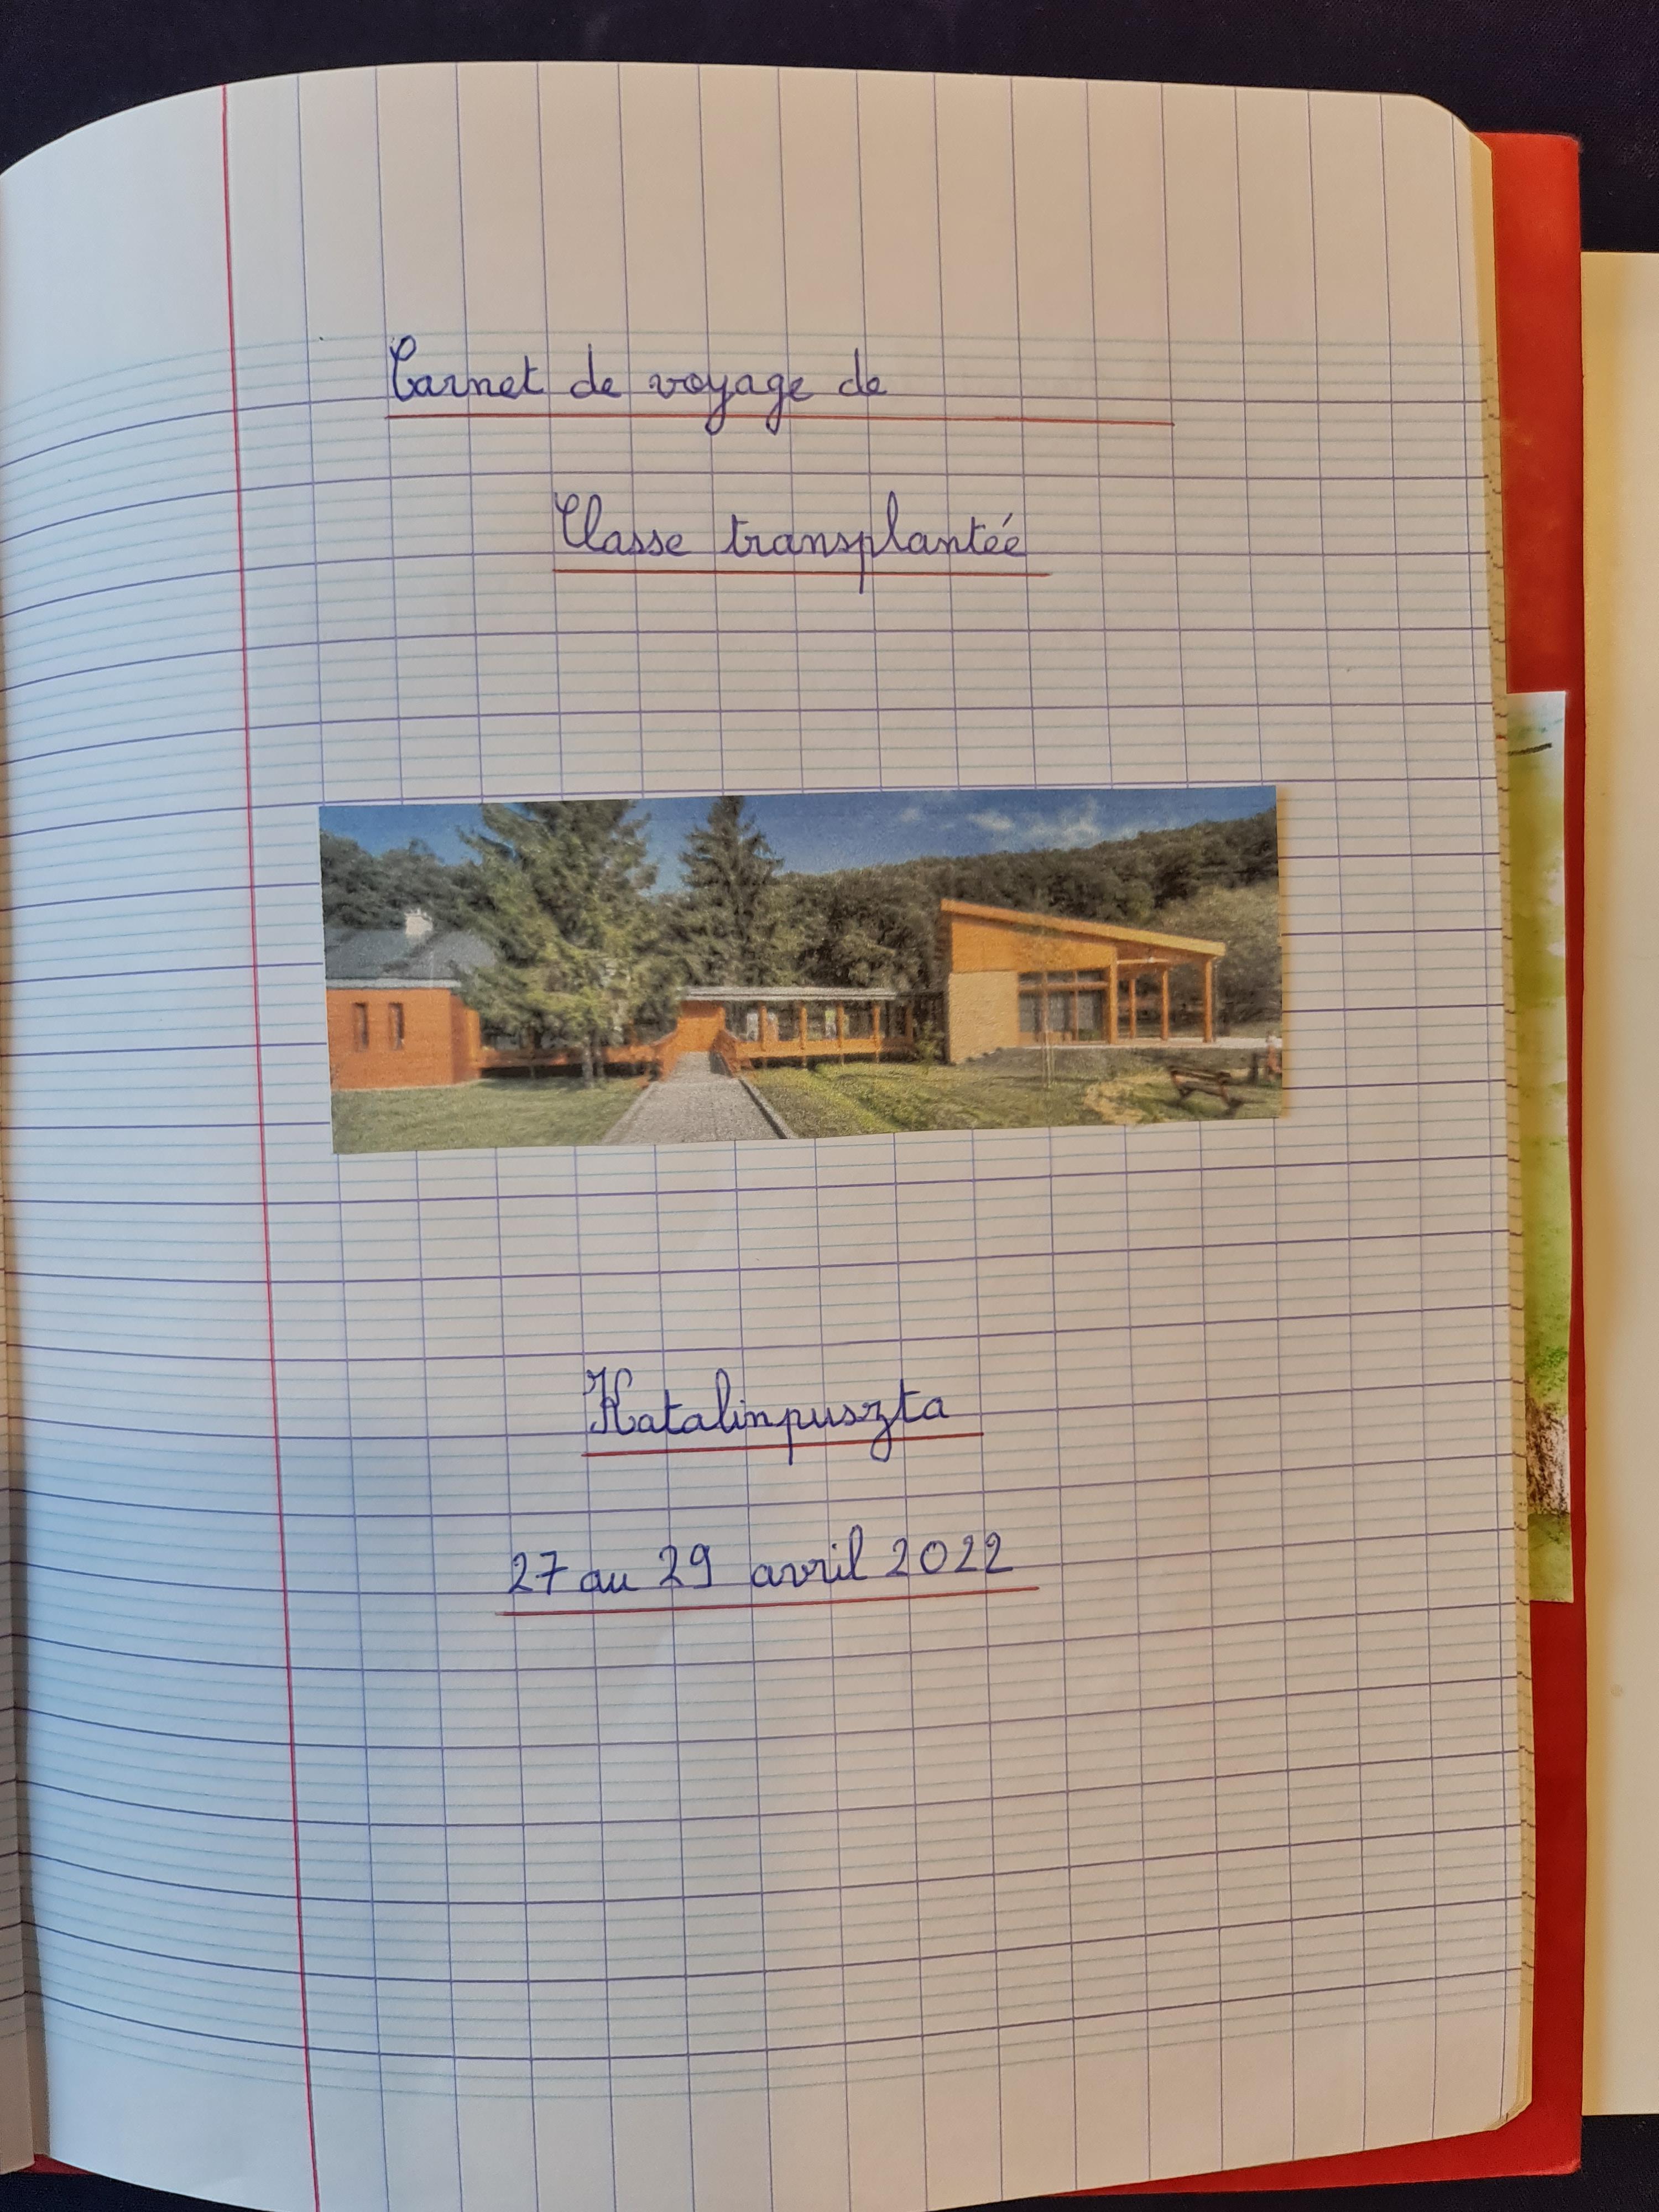 Carnet de voyage de
Classe transplantée
Katalinpuszta
27 au 29 avril 2022